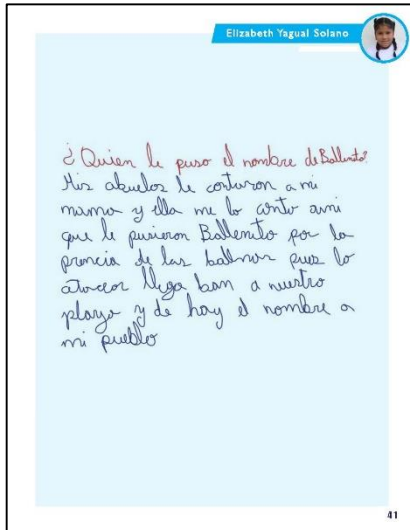 Elizabeth Yagual Solano
¿Quien le puso el nombre de Ballenita?
Mis abuelos le contaron a mi
mama y ella me lo conto ami
que le pusieron Ballenita por la
prencia de las ballnas pues lo
atarcer llega ban a nuestra
playa y de hay el nombre a
mi pueblo
41